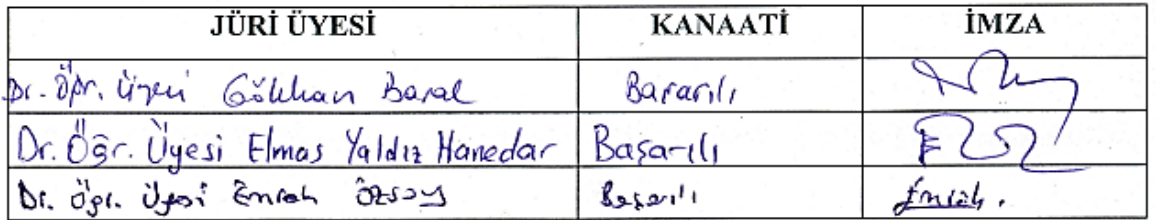 JÜRİ ÜYESİ KANAATİ İMZA
Dr. Öğr. Üyesi Gökhan Baral Başarılı
Dr. Öğr. Üyesi Elmas Yaldız Hanedar Başarılı
Dr. Öğr. Üyesi Emrah Özsoy Başarılı Emrah.